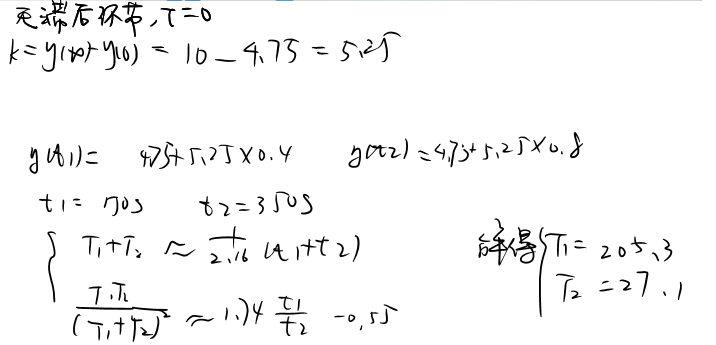 无滞后环节, τ=0
k=y(∞)-y(0) = 10-4.75 = 5.25
y(t1)= 4.75+5.25×0.4 y(t2)=4.75+5.25×0.8
t1= t2=350s
{ T1+T2 ≈ 1/2.16 (t1+t2) 解得 { T1= 205.3
T1T2/(T1+T2)² ≈ 1.74 t1/t2 -0.55 T2 =27.1